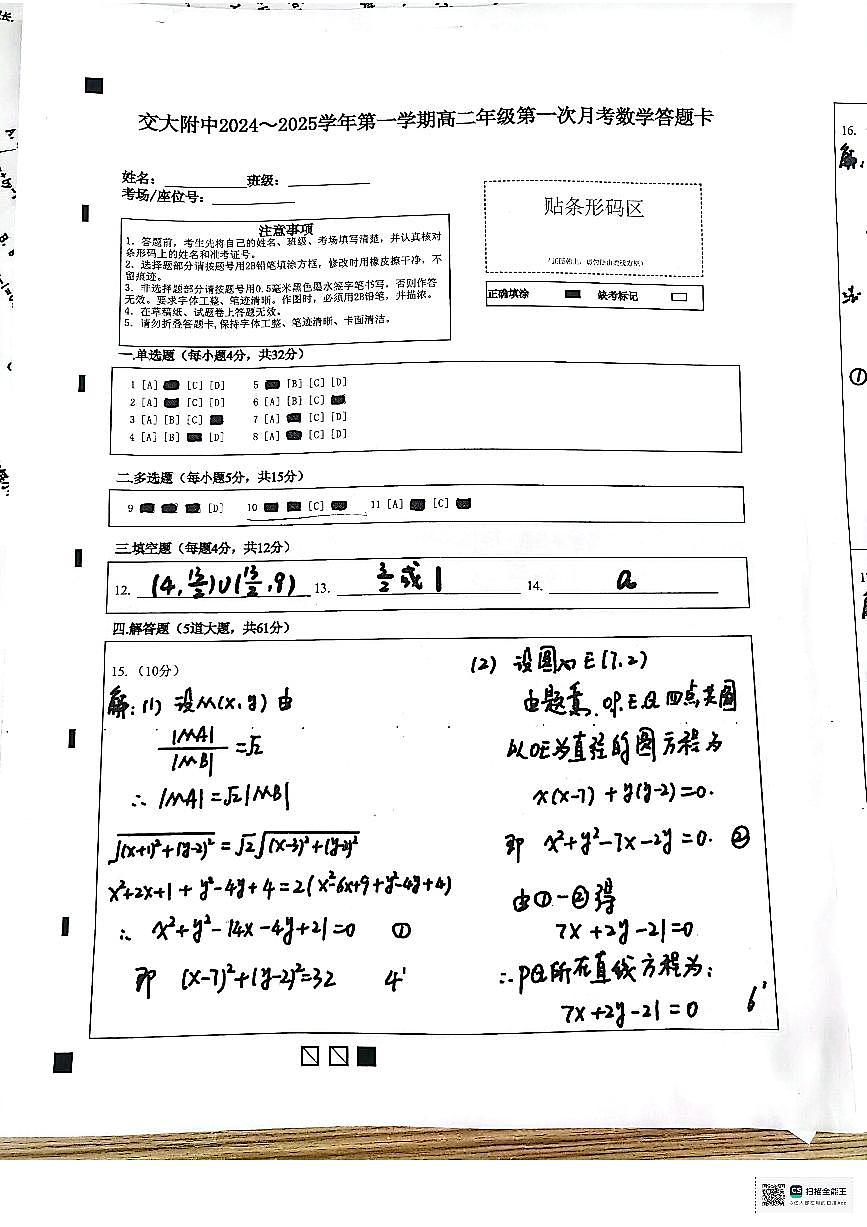 交大附中2024～2025学年第一学期高二年级第一次月考数学答题卡
姓名：
班级：
考场/座位号：
贴条形码区
注意事项
1. 答题前，考生先将自己的姓名、班级、考场填写清楚，并认真核对
条形码上的姓名和准考证号。
2. 选择题部分请按题号用2B铅笔填涂方框，修改时用橡皮擦干净，不
留痕迹。
3. 非选择题部分请按题号用0.5毫米黑色墨水签字笔书写，否则作答
无效。要求字体工整、笔迹清晰。作图时，必须用2B铅笔，并描浓。
4. 在草稿纸、试题卷上答题无效。
5. 请勿折叠答题卡，保持字体工整、笔迹清晰、卡面清洁。
正确填涂
缺考标记
一.单选题（每小题4分，共32分）
1 [A] [C] [D] 5 [B] [C] [D]
2 [A] [C] [D] 6 [A] [B] [C]
3 [A] [B] [C] 7 [A] [C] [D]
4 [A] [B] [D] 8 [A] [C] [D]
二.多选题（每小题5分，共15分）
9 [D] 10 [C] 11 [A] [C]
三.填空题（每题4分，共12分）
12. (4, 13/2)∪(13/2, 9) 13. 3/2 或 1 14. a
四.解答题（5道大题，共61分）
15. （10分）
解：(1) 设M(x, y) 由
|MA|/|MB| = √2
∴ |MA| = √2|MB|
√((x+1)²+(y-2)²) = √2√((x-3)²+(y-2)²)
x²+2x+1 + y²-4y+4 = 2(x²-6x+9+y²-4y+4)
∴ x²+y²-14x-4y+21=0 ①
即 (x-7)²+(y-2)²=32 4'
(2) 设圆为E(7,2)
由题意，O,P,E,Q 四点共圆
以OE为直径的圆方程为
x(x-7) + y(y-2) = 0.
即 x²+y²-7x-2y = 0. ②
由①-②得
7x+2y-21=0
∴PQ所在直线方程为：
7x+2y-21=0 6'
16.
解：
①
CS 扫描全能王